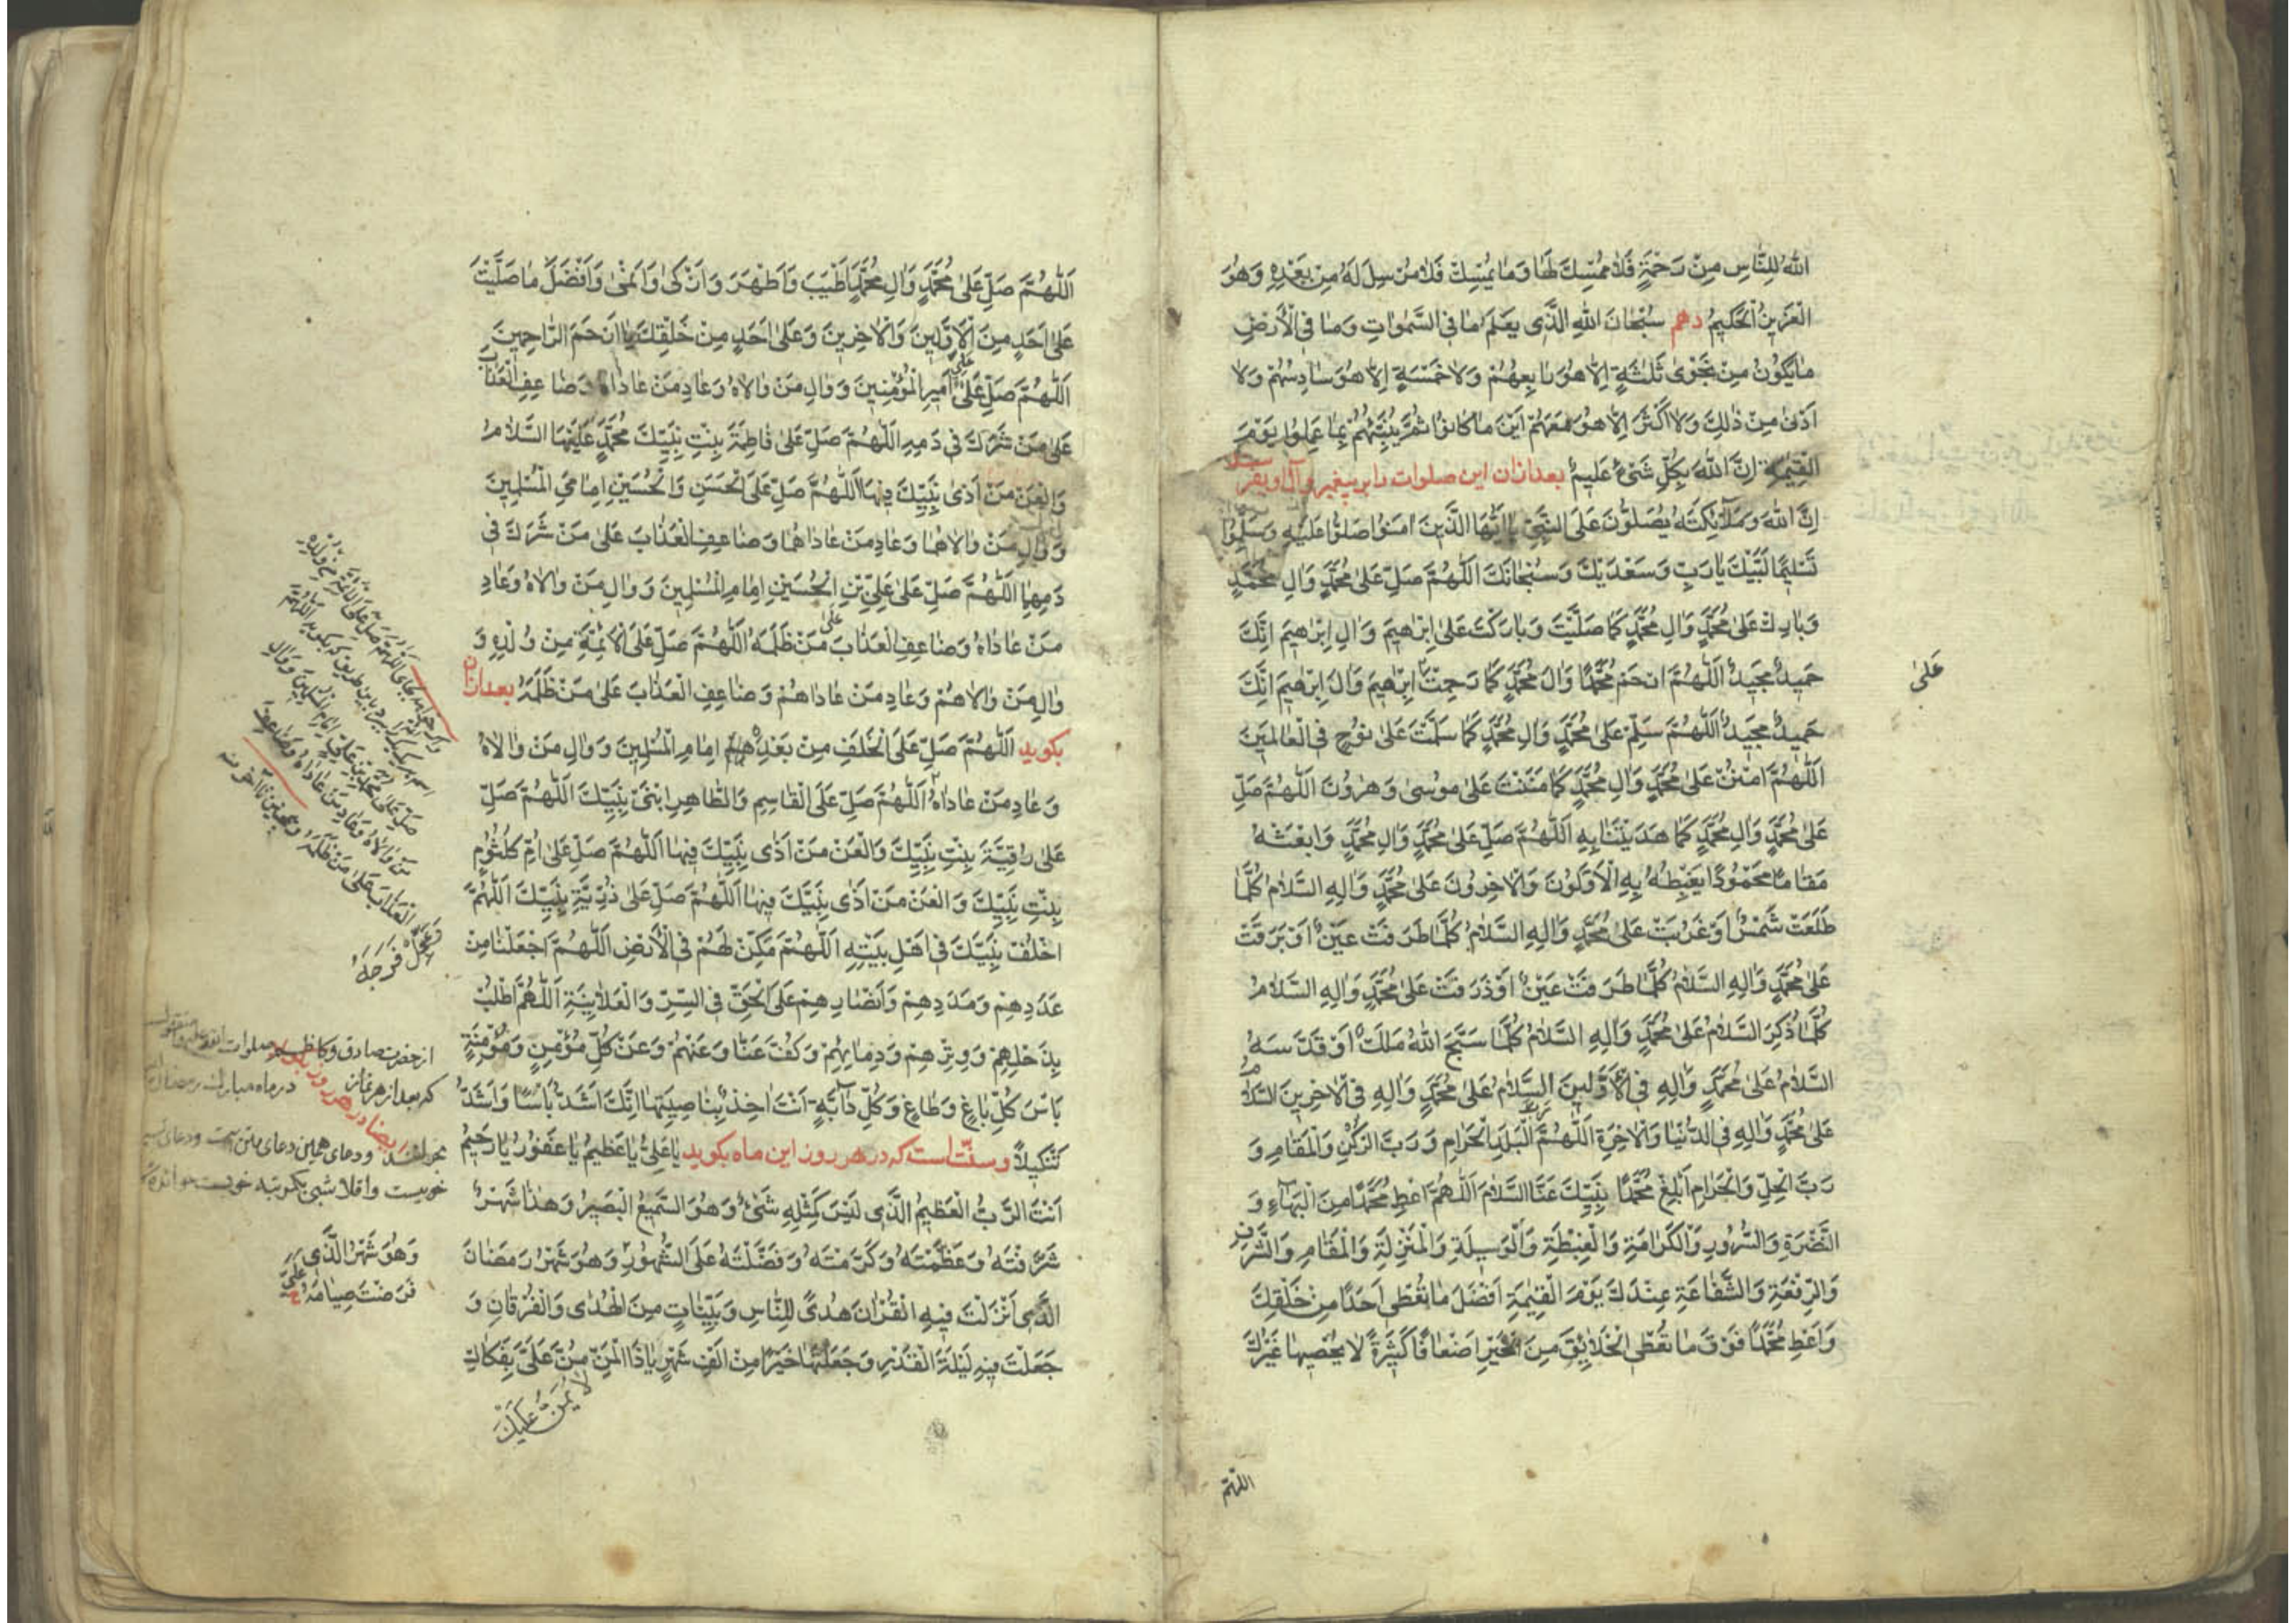 اللهُ لِلنَّاسِ مِنْ رَحْمَةٍ فَلَا مُمْسِكَ لَهَا وَمَا يُمْسِكْ فَلَا مُرْسِلَ لَهُ مِنْ بَعْدِهِ وَهُوَ
الْعَزِيزُ الْحَكِيمُ دهم سُبْحَانَ اللهِ الَّذِى يَعْلَمُ مَا فِى السَّمٰوَاتِ وَمَا فِى الْأَرْضِ
مَا يَكُوْنُ مِنْ نَجْوىٰ ثَلٰثَةٍ اِلَّا هُوَ رَابِعُهُمْ وَلَا خَمْسَةٍ اِلَّا هُوَ سَادِسُهُمْ وَلَا
اَدْنىٰ مِنْ ذٰلِكَ وَلَا اَكْثَرَ اِلَّا هُوَ مَعَهُمْ اَيْنَ مَا كَانُوا ثُمَّ يُنَبِّئُهُمْ بِمَا عَمِلُوا يَوْمَ
الْقِيٰمَةِ اِنَّ اللهَ بِكُلِّ شَىْءٍ عَلِيمٌ بعد ازان اين صلوات را بر پيغمبر و آل او بفرستد
اِنَّ اللهَ وَمَلَآئِكَتَهُ يُصَلُّوْنَ عَلَى النَّبِىِّ يَا اَيُّهَا الَّذِينَ اٰمَنُوا صَلُّوا عَلَيْهِ وَسَلِّمُوا
تَسْلِيمًا لَبَّيْكَ يَا رَبِّ وَسَعْدَيْكَ وَسُبْحَانَكَ اَللّٰهُمَّ صَلِّ عَلىٰ مُحَمَّدٍ وَاٰلِ مُحَمَّدٍ
وَبَارِكْ عَلىٰ مُحَمَّدٍ وَاٰلِ مُحَمَّدٍ كَمَا صَلَّيْتَ وَبَارَكْتَ عَلىٰ اِبْرٰهِيمَ وَاٰلِ اِبْرٰهِيمَ اِنَّكَ
حَمِيدٌ مَجِيدٌ اَللّٰهُمَّ ارْحَمْ مُحَمَّدًا وَاٰلَ مُحَمَّدٍ كَمَا رَحِمْتَ اِبْرٰهِيمَ وَاٰلَ اِبْرٰهِيمَ اِنَّكَ
عَلىٰ
حَمِيدٌ مَجِيدٌ اَللّٰهُمَّ سَلِّمْ عَلىٰ مُحَمَّدٍ وَاٰلِ مُحَمَّدٍ كَمَا سَلَّمْتَ عَلىٰ نُوْحٍ فِى الْعَالَمِينَ
اَللّٰهُمَّ امْنُنْ عَلىٰ مُحَمَّدٍ وَاٰلِ مُحَمَّدٍ كَمَا مَنَنْتَ عَلىٰ مُوسىٰ وَهٰرُوْنَ اَللّٰهُمَّ صَلِّ
عَلىٰ مُحَمَّدٍ وَاٰلِ مُحَمَّدٍ كَمَا هَدَيْتَنَا بِهِ اَللّٰهُمَّ صَلِّ عَلىٰ مُحَمَّدٍ وَاٰلِ مُحَمَّدٍ وَابْعَثْهُ
مَقَامًا مَحْمُوْدًا يَغْبِطُهُ بِهِ الْاَوَّلُوْنَ وَالْاٰخِرُوْنَ عَلىٰ مُحَمَّدٍ وَاٰلِهِ السَّلَامُ كُلَّمَا
طَلَعَتْ شَمْسٌ اَوْ غَرُبَتْ عَلىٰ مُحَمَّدٍ وَاٰلِهِ السَّلَامُ كُلَّمَا طَرَفَتْ عَيْنٌ اَوْ بَرَقَتْ
عَلىٰ مُحَمَّدٍ وَاٰلِهِ السَّلَامُ كُلَّمَا طَرَفَتْ عَيْنٌ اَوْ ذَرَفَتْ عَلىٰ مُحَمَّدٍ وَاٰلِهِ السَّلَامُ
كُلَّمَا ذُكِرَ السَّلَامُ عَلىٰ مُحَمَّدٍ وَاٰلِهِ السَّلَامُ كُلَّمَا سَبَّحَ اللهَ مَلَكٌ اَوْ قَدَّسَهُ
السَّلَامُ عَلىٰ مُحَمَّدٍ وَاٰلِهِ فِى الْاَوَّلِينَ السَّلَامُ عَلىٰ مُحَمَّدٍ وَاٰلِهِ فِى الْاٰخِرِينَ السَّلَامُ
عَلىٰ مُحَمَّدٍ وَاٰلِهِ فِى الدُّنْيَا وَالْاٰخِرَةِ اَللّٰهُمَّ رَبَّ الْبَلَدِ الْحَرَامِ وَرَبَّ الرُّكْنِ وَالْمَقَامِ وَ
رَبَّ الْحِلِّ وَالْحَرَامِ اَبْلِغْ مُحَمَّدًا نَبِيَّكَ عَنَّا السَّلَامَ اَللّٰهُمَّ اَعْطِ مُحَمَّدًا مِنَ الْبَهَآءِ وَ
النَّضْرَةِ وَالسُّرُورِ وَالْكَرَامَةِ وَالْغِبْطَةِ وَالْوَسِيلَةِ وَالْمَنْزِلَةِ وَالْمَقَامِ وَالشَّرَفِ
وَالرِّفْعَةِ وَالشَّفَاعَةِ عِنْدَكَ يَوْمَ الْقِيٰمَةِ اَفْضَلَ مَا تُعْطِى اَحَدًا مِنْ خَلْقِكَ
وَاَعْطِ مُحَمَّدًا فَوْقَ مَا تُعْطِى الْخَلَائِقَ مِنَ الْخَيْرِ اَضْعَافًا كَثِيرَةً لَا يُحْصِيهَا غَيْرُكَ
اللّهُمَّ
اَللّٰهُمَّ صَلِّ عَلىٰ مُحَمَّدٍ وَاٰلِ مُحَمَّدٍ اَطْيَبَ وَاَطْهَرَ وَاَزْكىٰ وَاَنْمىٰ وَاَفْضَلَ مَا صَلَّيْتَ
عَلىٰ اَحَدٍ مِنَ الْاَوَّلِينَ وَالْاٰخِرِينَ وَعَلىٰ اَحَدٍ مِنْ خَلْقِكَ يَا اَرْحَمَ الرَّاحِمِينَ
اَللّٰهُمَّ صَلِّ عَلىٰ عَلِىٍّ اَمِيرِ الْمُؤْمِنِينَ وَوَالِ مَنْ وَالَاهُ وَعَادِ مَنْ عَادَاهُ وَضَاعِفِ الْعَذَابَ
عَلىٰ مَنْ شَرِكَ فِى دَمِهِ اَللّٰهُمَّ صَلِّ عَلىٰ فَاطِمَةَ بِنْتِ نَبِيِّكَ مُحَمَّدٍ عَلَيْهَا السَّلَامُ
وَالْعَنْ مَنْ اٰذىٰ نَبِيَّكَ فِيهَا اَللّٰهُمَّ صَلِّ عَلَى الْحَسَنِ وَالْحُسَيْنِ اِمَامَىِ الْمُسْلِمِينَ
وَوَالِ مَنْ وَالَاهُمَا وَعَادِ مَنْ عَادَاهُمَا وَضَاعِفِ الْعَذَابَ عَلىٰ مَنْ شَرِكَ فِى
دَمِهِمَا اَللّٰهُمَّ صَلِّ عَلىٰ عَلِىِّ بْنِ الْحُسَيْنِ اِمَامِ الْمُسْلِمِينَ وَوَالِ مَنْ وَالَاهُ وَعَادِ
مَنْ عَادَاهُ وَضَاعِفِ الْعَذَابَ عَلىٰ مَنْ ظَلَمَهُ اَللّٰهُمَّ صَلِّ عَلَى الْاَئِمَّةِ مِنْ وُلْدِهِ وَ
وَالِ مَنْ وَالَاهُمْ وَعَادِ مَنْ عَادَاهُمْ وَضَاعِفِ الْعَذَابَ عَلىٰ مَنْ ظَلَمَهُ بعد ازان
بكويد اَللّٰهُمَّ صَلِّ عَلَى الْخَلَفِ مِنْ بَعْدِهِمْ اِمَامِ الْمُسْلِمِينَ وَوَالِ مَنْ وَالَاهُ
وَعَادِ مَنْ عَادَاهُ اَللّٰهُمَّ صَلِّ عَلَى الْقَاسِمِ وَالطَّاهِرِ ابْنَىْ نَبِيِّكَ اَللّٰهُمَّ صَلِّ
عَلىٰ رُقَيَّةَ بِنْتِ نَبِيِّكَ وَالْعَنْ مَنْ اٰذىٰ نَبِيَّكَ فِيهَا اَللّٰهُمَّ صَلِّ عَلىٰ اُمِّ كُلْثُوْمٍ
بِنْتِ نَبِيِّكَ وَالْعَنْ مَنْ اٰذىٰ نَبِيَّكَ فِيهَا اَللّٰهُمَّ صَلِّ عَلىٰ ذُرِّيَّةِ نَبِيِّكَ اَللّٰهُمَّ
اخْلُفْ نَبِيَّكَ فِى اَهْلِ بَيْتِهِ اَللّٰهُمَّ مَكِّنْ لَهُمْ فِى الْاَرْضِ اَللّٰهُمَّ اجْعَلْنَا مِنْ
عَدَدِهِمْ وَمَدَدِهِمْ وَاَنْصَارِهِمْ عَلَى الْحَقِّ فِى السِّرِّ وَالْعَلَانِيَةِ اَللّٰهُمَّ اطْلُبْ
بِذَحْلِهِمْ وَوِتْرِهِمْ وَدِمَائِهِمْ وَكُفَّ عَنَّا وَعَنْهُمْ وَعَنْ كُلِّ مُؤْمِنٍ وَمُؤْمِنَةٍ
بَأْسَ كُلِّ بَاغٍ وَطَاغٍ وَكُلِّ دَآبَّةٍ اَنْتَ اٰخِذٌ بِنَاصِيَتِهَا اِنَّكَ اَشَدُّ بَأْسًا وَاَشَدُّ
تَنْكِيلًا وسنّت است كه در هر روز اين ماه بكويد يَا عَلِىُّ يَا عَظِيمُ يَا غَفُوْرُ يَا رَحِيمُ
اَنْتَ الرَّبُّ الْعَظِيمُ الَّذِى لَيْسَ كَمِثْلِهِ شَىْءٌ وَهُوَ السَّمِيعُ الْبَصِيرُ وَهٰذَا شَهْرٌ
شَرَّفْتَهُ وَعَظَّمْتَهُ وَكَرَّمْتَهُ وَفَضَّلْتَهُ عَلَى الشُّهُوْرِ وَهُوَ شَهْرُ رَمَضَانَ
الَّذِى اَنْزَلْتَ فِيهِ الْقُرْاٰنَ هُدًى لِلنَّاسِ وَبَيِّنَاتٍ مِنَ الْهُدٰى وَالْفُرْقَانِ وَ
جَعَلْتَ فِيهِ لَيْلَةَ الْقَدْرِ وَجَعَلْتَهَا خَيْرًا مِنْ اَلْفِ شَهْرٍ يَا ذَا الْمَنِّ مُنَّ عَلَىَّ بِفَكَاكِ
لَا يُمَنُّ عَلَيْكَ
صَلِّ عَلىٰ مُحَمَّدِ بْنِ عَلِىٍّ اِمَامِ الْمُسْلِمِينَ وَوَالِ
مَنْ وَالَاهُ وَعَادِ مَنْ عَادَاهُ وَضَاعِفِ
الْعَذَابَ عَلىٰ مَنْ ظَلَمَهُ
وَعَجِّلْ فَرَجَهُ
از حضرت صادق و كاظم
كه بعد از هر نماز در ماه مبارك رمضان
وَهُوَ شَهْرُ الَّذِى
فَرَضْتَ صِيَامَهُ عَلَىَّ